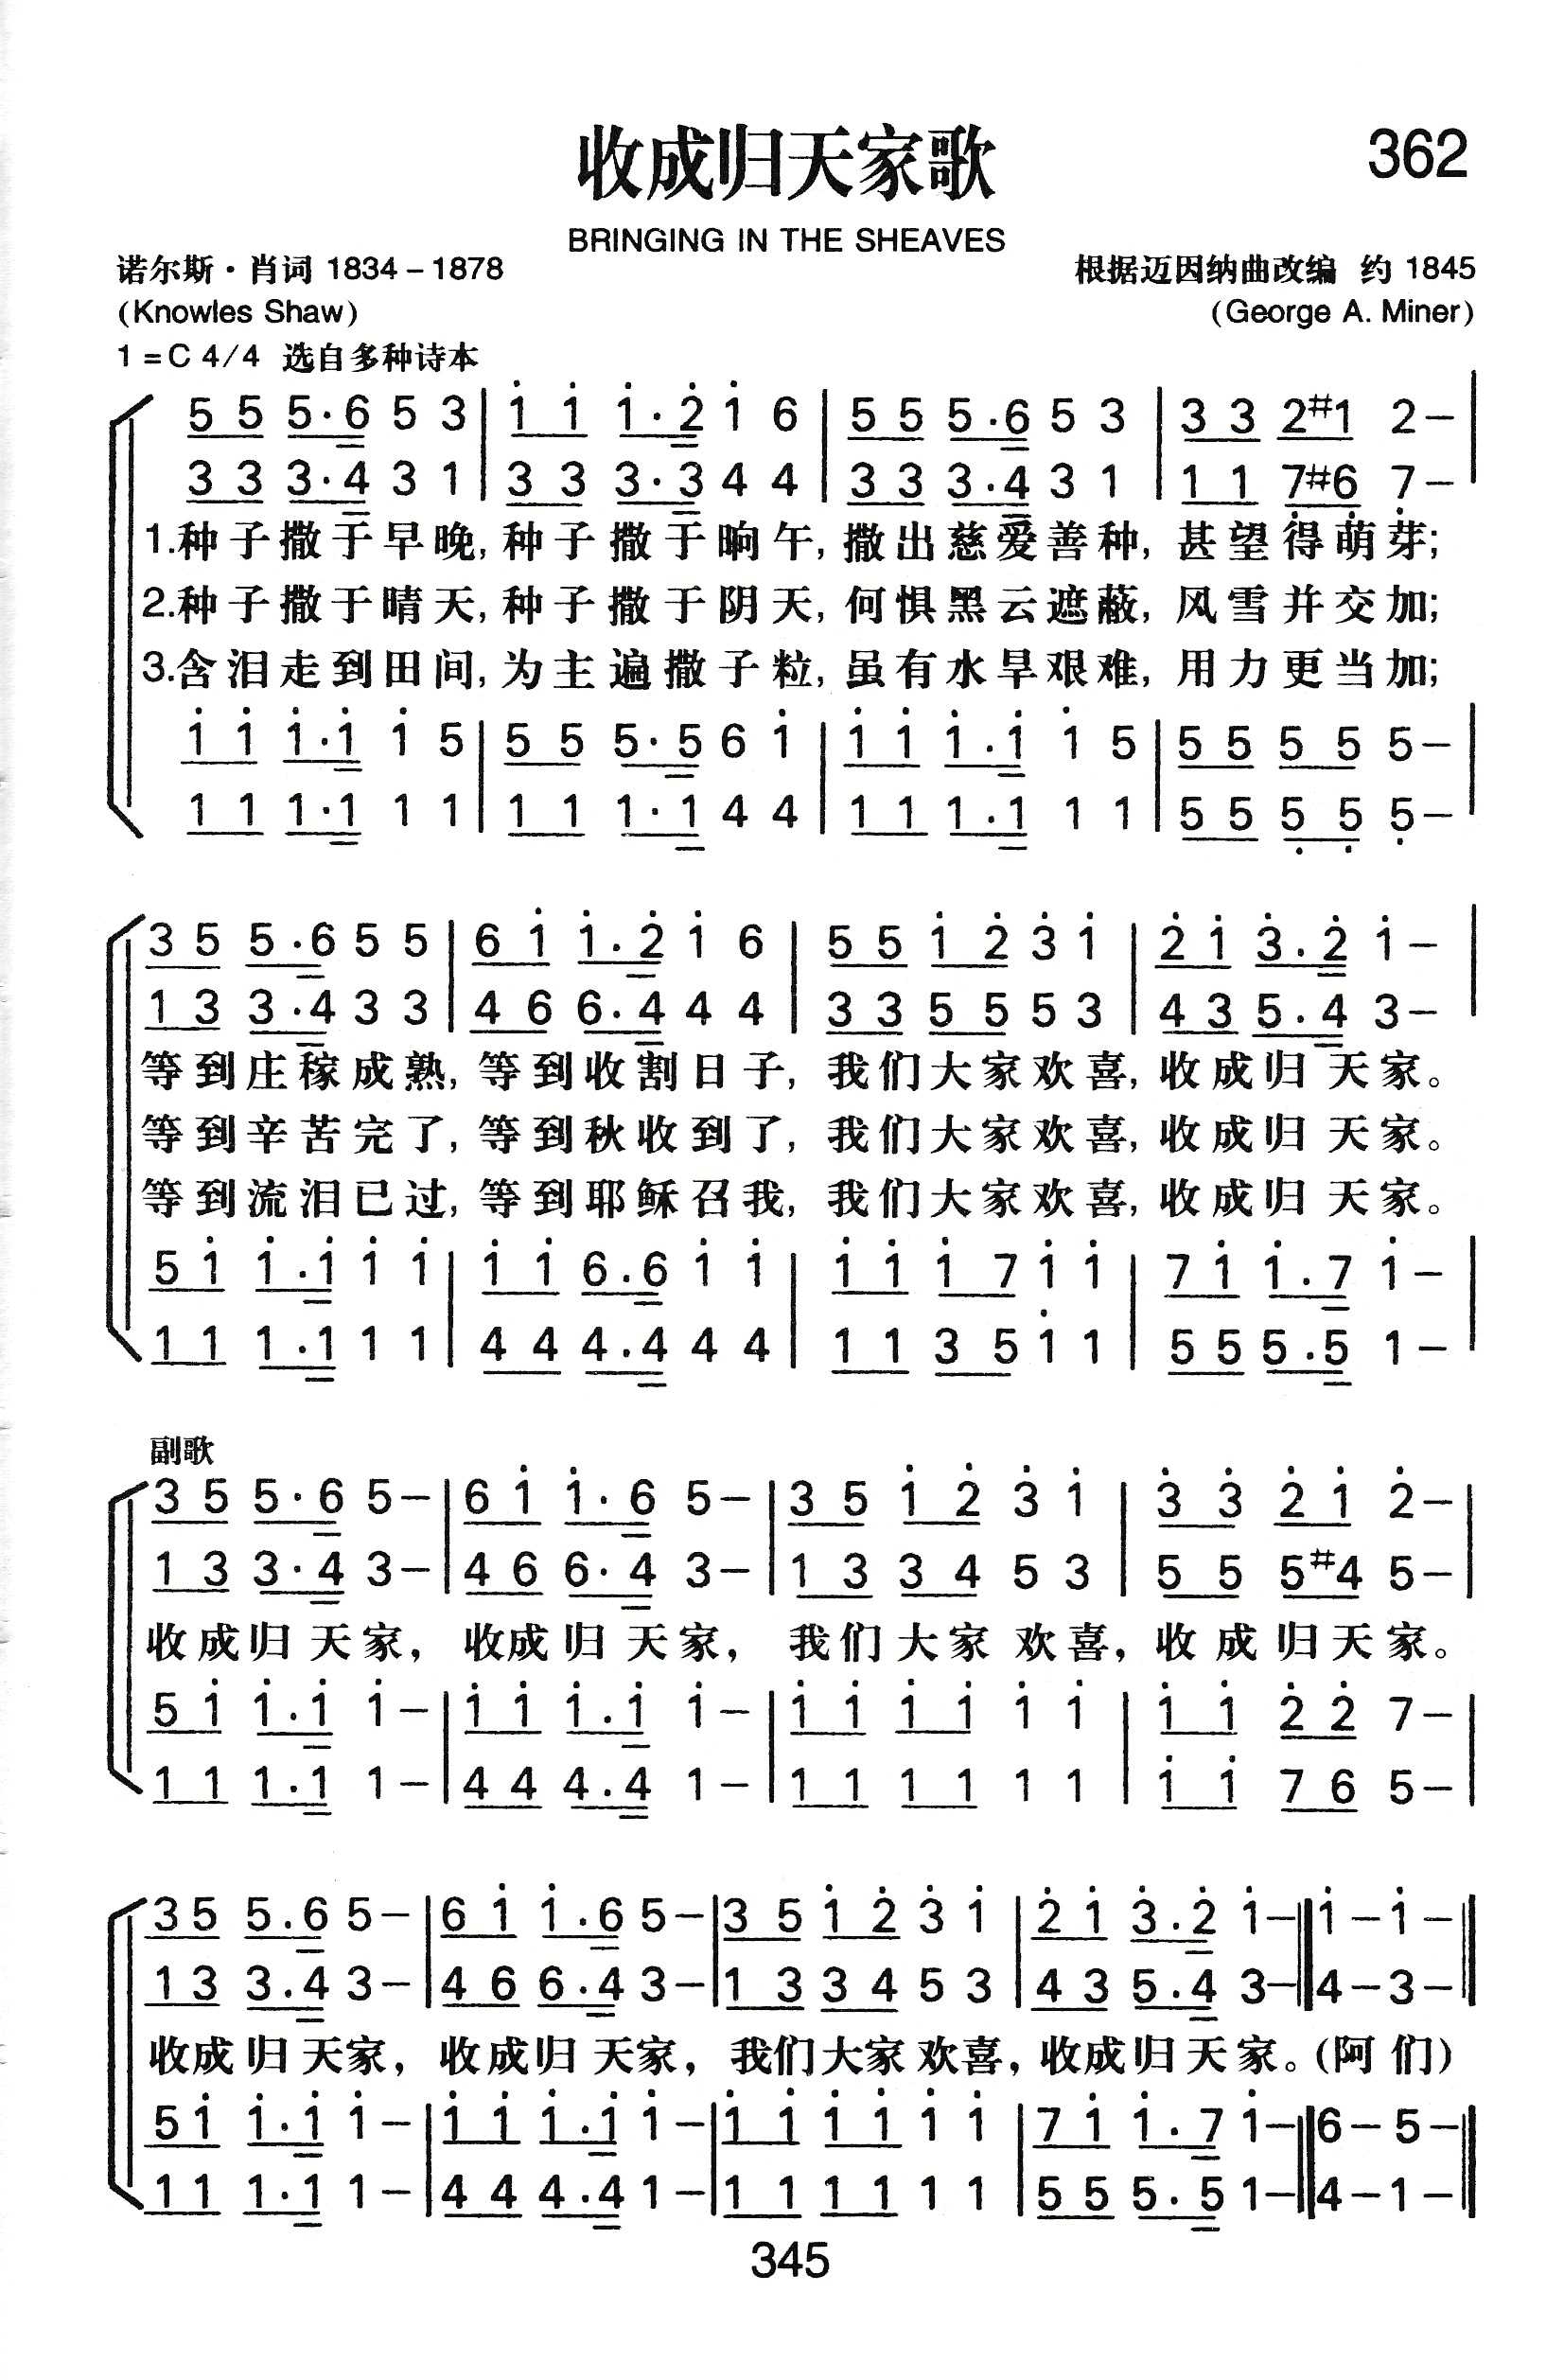 收成归天家歌
362
BRINGING IN THE SHEAVES
诺尔斯·肖词 1834－1878
根据迈因纳曲改编 约 1845
(Knowles Shaw)
(George A. Miner)
1＝C 4/4 选自多种诗本
5 5 5·6 5 3 | i i i·2̇ i 6 | 5 5 5·6 5 3 | 3 3 2#1 2－ |
3 3 3·4 3 1 | 3 3 3·3 4 4 | 3 3 3·4 3 1 | 1 1 7̣#6̣ 7̣－ |
1.种子撒于早晚,种子撒于晌午,撒出慈爱善种,甚望得萌芽;
2.种子撒于晴天,种子撒于阴天,何惧黑云遮蔽,风雪并交加;
3.含泪走到田间,为主遍撒子粒,虽有水旱艰难,用力更当加;
i i i·i i 5 | 5 5 5·5 6 i | i i i·i i 5 | 5 5 5 5 5－ |
1 1 1·1 1 1 | 1 1 1·1 4 4 | 1 1 1·1 1 1 | 5 5 5̣ 5̣ 5̣－ |
3 5 5·6 5 5 | 6 i i·2̇ i 6 | 5 5 i 2̇ 3̇ i | 2̇ i 3̇·2̇ i－ |
1 3 3·4 3 3 | 4 6 6·4 4 4 | 3 3 5 5 5 3 | 4 3 5·4 3－ |
等到庄稼成熟,等到收割日子,我们大家欢喜,收成归天家。
等到辛苦完了,等到秋收到了,我们大家欢喜,收成归天家。
等到流泪已过,等到耶稣召我,我们大家欢喜,收成归天家。
5 i i·i i i | i i 6·6 i i | i i i 7 i i | 7 i i·7 i－ |
1 1 1·1 1 1 | 4 4 4·4 4 4 | 1 1 3 5 i 1 | 5 5 5·5 1－ |
副歌
3 5 5·6 5－ | 6 i i·6 5－ | 3 5 i 2̇ 3̇ i | 3̇ 3̇ 2̇ i 2̇－ |
1 3 3·4 3－ | 4 6 6·4 3－ | 1 3 3 4 5 3 | 5 5 5#4 5－ |
收成归天家, 收成归天家, 我们大家欢喜,收成归天家。
5 i i·i i－ | i i i·i i－ | i i i i i i | i i 2̇ 2̇ 7－ |
1 1 1·1 1－ | 4 4 4·4 1－ | 1 1 1 1 1 1 | i i 7 6 5－ |
3 5 5·6 5－ | 6 i i·6 5－ | 3 5 i 2̇ 3̇ i | 2̇ i 3̇·2̇ i－ ‖ i－i－ ‖
1 3 3·4 3－ | 4 6 6·4 3－ | 1 3 3 4 5 3 | 4 3 5·4 3－ ‖ 4－3－ ‖
收成归天家, 收成归天家, 我们大家欢喜,收成归天家。(阿们)
5 i i·i i－ | i i i·i i－ | i i i i i i | 7 i i·7 i－ ‖ 6－5－ ‖
1 1 1·1 1－ | 4 4 4·4 1－ | 1 1 1 1 1 1 | 5 5 5·5 1－ ‖ 4－1－ ‖
345